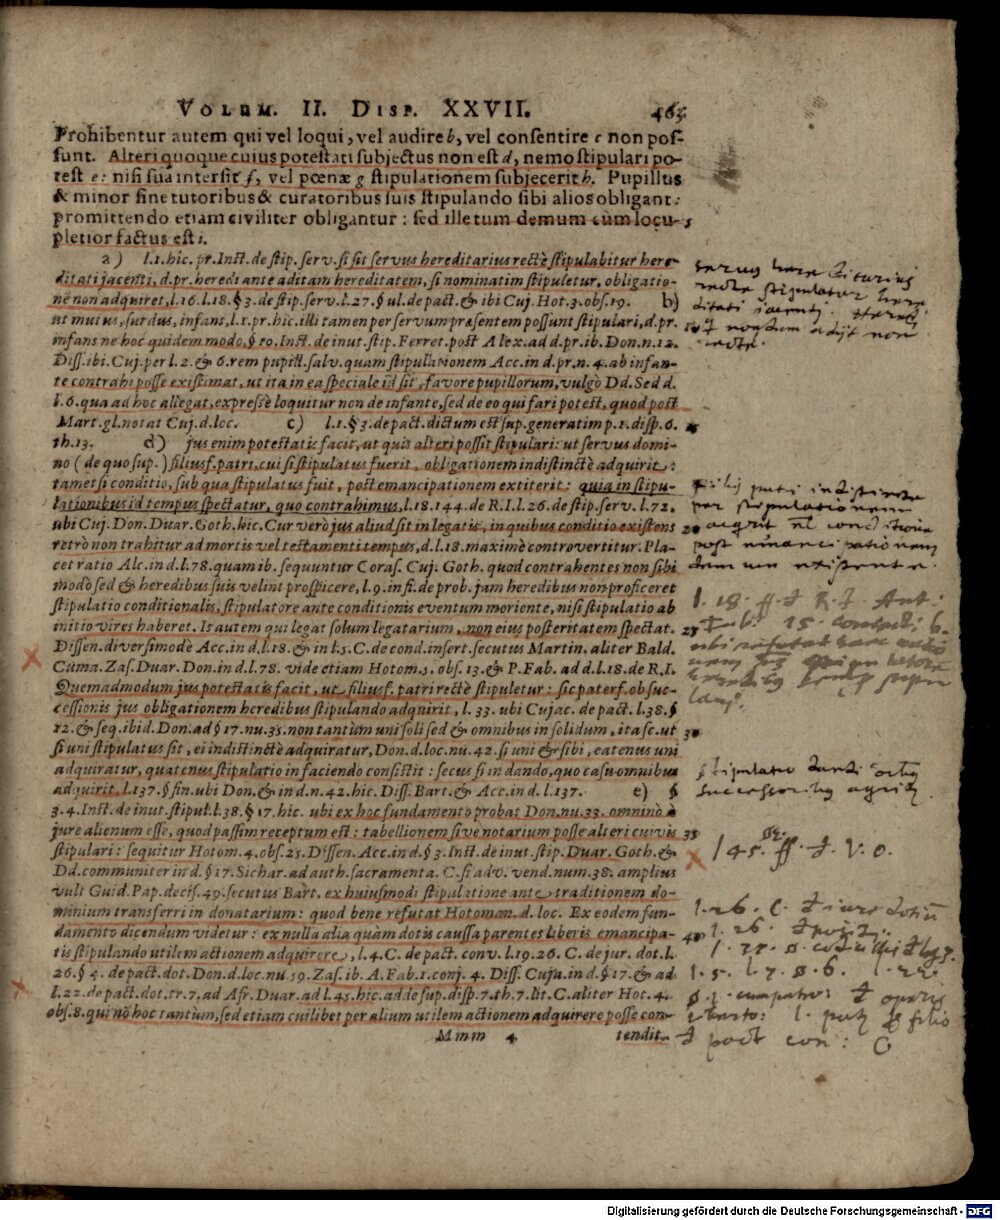 VOLUM. II. DISP. XXVII. 465
Prohibentur autem qui vel loqui, vel audire b, vel consentire c non pos-
sunt. Alteri quoque cuius potestati subjectus non est d, nemo stipulari po-
test e: nisi sua intersit f, vel pœnæ g stipulationem subjecerit h. Pupillus
& minor sine tutoribus & curatoribus suis stipulando sibi alios obligant:
promittendo etiam civiliter obligantur: sed ille tum demum cùm locu- 5
pletior factus est i.
a) l.1. hic. pr. Inst. de stip. serv. si sit servus hereditarius rectè stipulabitur here-
ditati jacenti, d. pr. heredi ante aditam hereditatem, si nominatim stipuletur, obligatio-
nẽ non adquiret, l.16. l.18. § 3. de stip. serv. l.27. § ul. de pact. & ibi Cuj. Hot. 3. obs. 19. b)
ut mutus, surdus, infans, l.1. pr. hic. illi tamen per servum præsentem possunt stipulari, d. pr. 10
infans ne hoc quidem modo, § 10. Inst. de inut. stip. Ferret. post Alex. ad d. pr. ib. Don. n. 12.
Diss. ibi. Cuj. per l. 2. & 6. rem pupill. salv. quam stipulationem Acc. in d. pr. n. 4. ab infan-
te contrahi posse existimat, ut ita in ea speciale id sit, favore pupillorum, vulgò Dd. Sed d.
l. 6. qua ad hoc allegat, expressè loquitur non de infante, sed de eo qui fari potest, quod post
Mart. gl. notat Cuj. d. loc. c) l.1. § 3. de pact. dictum est sup. generatim p. 1. disp. 6.
th. 13. d) jus enim potestatis facit, ut quis alteri possit stipulari: ut servus domi-
no (de quo sup.) filiusf. patri, cui si stipulatus fuerit, obligationem indistinctè adquirit:
tametsi conditio, sub qua stipulatus fuit, post emancipationem extiterit: quia in stipu-
lationibus id tempus spectatur, quo contrahimus, l.18. 144. de R.I. l. 26. de stip. serv. l. 72.
ubi Cuj. Don. Duar. Goth. hic. Cur verò jus aliud sit in legatis, in quibus conditio existens 20
retrò non trahitur ad mortis vel testamenti tempus, d. l. 18. maximè controvertitur. Pla-
cet ratio Alc. in d. l. 78. quam ib. sequuntur Coras. Cuj. Goth. quod contrahentes non sibi
modò sed & heredibus suis velint prospicere, l. 9. infi. de prob. jam heredibus non proficeret
stipulatio conditionalis, stipulatore ante conditionis eventum moriente, nisi stipulatio ab
initio vires haberet. Is autem qui legat solum legatarium, non eius posteritatem spectat. 25
Dissen. diversimodè Acc. in d. l. 18. & in l. 5. C. de cond. insert. secutus Martin. aliter Bald.
Cuma. Zas. Duar. Don. in d. l. 78. vide etiam Hotom. 5. obs. 13. & P. Fab. ad d. l. 18. de R.I.
Quemadmodum jus potestatis facit, ut filiusf. patri rectè stipuletur: sic paterf. ob suc-
cessionis jus obligationem heredibus stipulando adquirit, l. 33. ubi Cujac. de pact. l. 38. §
12. & seq. ibid. Don. ad § 17. nu. 35. non tantùm uni soli sed & omnibus in solidum, ita sc. ut 30
si uni stipulatus sit, ei indistinctè adquiratur, Don. d. loc. nu. 42. si uni & sibi, eatenus uni
adquiratur, quatenus stipulatio in faciendo consistit: secus si in dando, quo casu omnibus
adquirit, l. 137. § fin. ubi Don. & in d. n. 42. hic. Diss. Bart. & Acc. in d. l. 137. e) §
3. 4. Inst. de inut. stipul. l. 38. § 17. hic. ubi ex hoc fundamento probat Don. nu. 33. omnino è
jure alienum esse, quod passim receptum est: tabellionem sive notarium posse alteri cuivis 35
stipulari: sequitur Hotom. 4. obs. 25. Dissen. Acc. in d. § 3. Inst. de inut. stip. Duar. Goth. &
Dd. communiter in d. § 17. Sichar. ad auth. sacramenta. C. si adv. vend. num. 38. amplius
vult Guid. Pap. decis. 49. secutus Bart. ex huiusmodi stipulatione ante traditionem do-
minium transferri in donatarium: quod bene refutat Hotoman. d. loc. Ex eodem fun-
damento dicendum videtur: ex nulla alia quàm dotis caussa parentes liberis emancipa- 40
tis stipulando utilem actionem adquirere, l. 4. C. de pact. conv. l. 19. 26. C. de jur. dot. l.
26. § 4. de pact. dot. Don. d. loc. nu. 59. Zas. ib. A. Fab. 1. conj. 4. Diss. Cuja. in d. § 17. & ad
l. 22. de pact. dot. tr. 7. ad Afr. Duar. ad l. 45. hic. adde sup. disp. 7. th. 7. lit. C. aliter Hot. 4.
obs. 8. qui nõ hoc tantùm, sed etiam cuilibet per alium utilem actionem adquirere posse con-
Mmm 4 tendit.
servus hereditarius
recte stipulatur here
ditati jacenti. Heredi
non
recte.
patri indistincte
per stipulationem
acqrit conditione
post emancipationem
demum existente.
l. 18. ff. d R. J.
stipulatio
successoribus
l 45. ff. d. V. O.
l. 26. C. d iure dotiũ
l. 26.
l. 5. l. 7. § 6.
d pact con: C
Digitalisierung gefördert durch die Deutsche Forschungsgemeinschaft - DFG